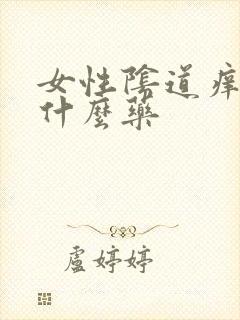 女性陰道痒
什麼藥
盧婷婷